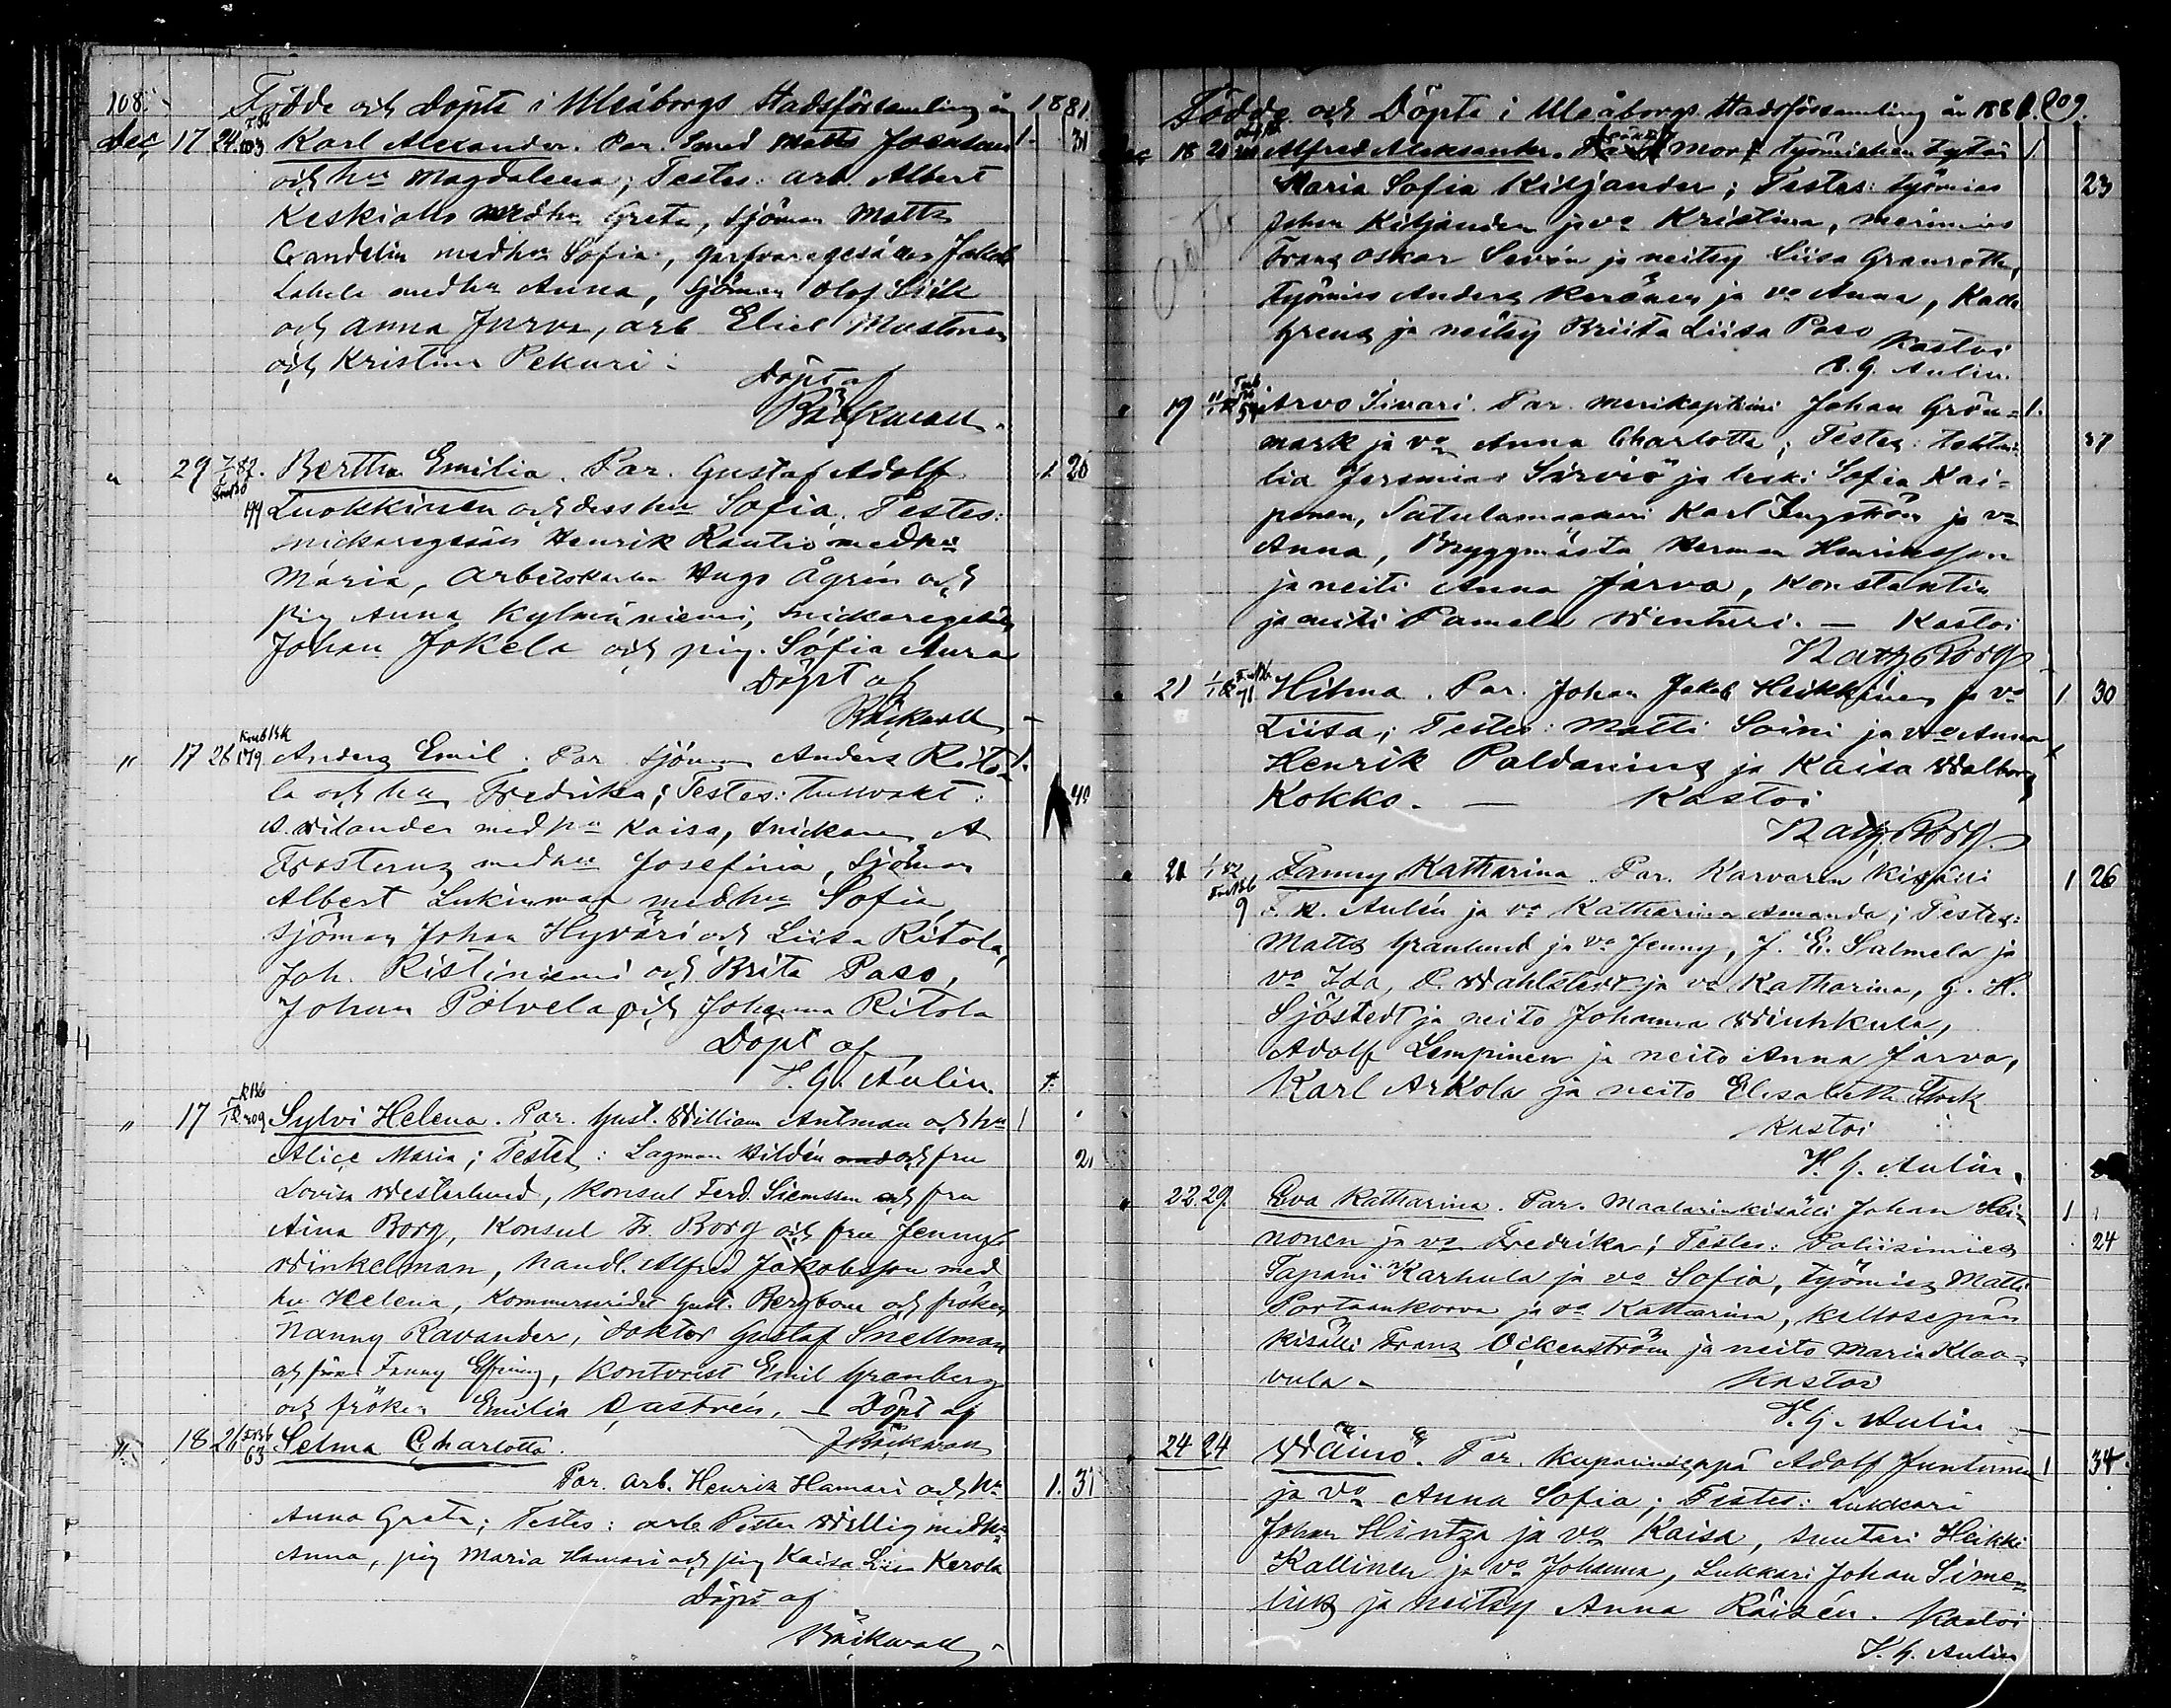 108.
Födde och Döpte i Uleåborgs Stadsförsamling år 1881.
Dec 17 24. 103 Karl Alexander. Par. Smed Matts 1. 31
och hu Magdalena; Testes: arb. Albert
Keskitalo med hu Greta, sjöman Matts
Grandelin med hu Sofia, garfvaregesällen Jakob
med hu Anna, Sjöman Olof
och Anna Jurva, arb Eliel Mustonen
och Kristina Pekuri.
Döpt af
Bäckwall.
" 29 Bertha Emilia. Par. Gustaf Adolf 1. 26
199 Luokkinen och dess hu Sofia. Testes:
snickaregesäll Henrik Rautio med hu
Maria, Arbetskarlen Hugo Ågrén och
pig Anna Kylmäniemi, Snickaregesäll
Johan Jokela och pig. Sofia Aura
Döpt af
Bäckwall
" 17 28 179 Anders Emil. Par sjöman Anders Rito- 1.
la och hu Fredrika; Testes: tullvakt: 40
A. Wilander med hu Kaisa, snickaren A
Frosterus med hu Josefina, Sjöman
Albert Lukinmaa med hu Sofia,
Sjöman Johan Hyväri och Liisa Ritola,
Joh. Ristiniemi och Brita Paso,
Johan Polvela och Johanna Ritola
Döpt af
V. G. Aulin.
" 17 209 Sylvi Helena. Par. Gust. William Antman och hu 1
Alice Maria; Testes: Lagman Hildén och fru 21
Lovisa Westerlund, Konsul Ferd. Siemssen och fru
Aina Borg, Konsul Fr. Borg och fru Jenny
Winkelman, handl. Alfred Jakobsson med
hu Helena, Kommerserådet Gust. Bergbom och fröken
Nanny Ravander, doktor Gustaf Snellman
och Fanny, Kontorist Emil Granberg
och fröken Emilia Castrén. — Döpt af
J Bäckwall
" 18 26 63 Selma Charlotta.
Par. arb. Henrik Hamari och hu 1. 31
Anna Greta; Testes: arb Petter Willig med hu
Anna, pig Maria Hamari och pig Kaisa Liisa Kerola
Döpt af
Bäckwall
Födde och Döpte i Uleåborgs Stadsförsamling år 1881. 109.
Dec 18 20 Alfred Aleksanter. Mor: työmiehen tytär 1.
Maria Sofia Kiljander; Testes: työmies 23
Johan Kiljander ja vo Kristina, merimies
Frans Oskar Sevón ja neitsy Liisa Granroth,
työmies Anders Keränen ja vo Anna, Kaale
ja neitsy Briita Liisa Paso
Kastoi
V. G. Aulin.
" 19 Arvo Iivari. Par. merikapteini Johan Grön- 1.
mark ja vo Anna Charlotta; Testes: 37
Jeremias Sirviö ja leski Sofia Kai-
ponen, Satulamaakari Karl Ingström ja vo
Anna, Bryggmästa Herman Henriksson
ja neiti Anna Järvo, Konstantin
ja neiti Pamela Wenturi. — Kastoi
" 21 71 Hilma. Par. Johan Jakob Heikkinen ja vo 1 30
Liisa; Testes: Matti Soini ja vo Anna
Henrik Paldanius ja Kaisa Walborg
Kokko. — Kastoi
" 21 9 Fanny Katharina. Par. Karvarin kisälli 1 26
Aulén ja vo Katharina Amanda; Testes:
Matts Granlund ja vo Jenny, J. E. Salmela ja
vo Ida, C. Wahlstedt ja vo Katharina, G. H.
Sjöstedt ja neito Johanna Wiuhkula,
Adolf Lempinen ja neito Anna Järvo,
Karl Arkola ja neito Elisabeth
Kastoi
V. G. Aulin.
" 22. 29. Eva Katharina. Par. Maalarinkisälli Johan Hei- 1
nonen ja vo Fredrika; Testes: Poliisimies 24
Tapani Karhula ja vo Sofia, työmies Matti
Portaankorva ja vo Katharina, kellosepän
kisälli Frans Ockenström ja neito Maria Klaa-
vula. Kastoi
V. G. Aulin
24 24 Wäinö. Par. kupariseppä Adolf Juntunen 1 34.
ja vo Anna Sofia; Testes: Lukkari
Johan Hintza ja vo Kaisa, Suutari Heikki
Kallinen ja vo Johanna, Lukkari Johan Sime-
lius ja neitsy Anna Räisén. Kastoi
V. G. Aulin